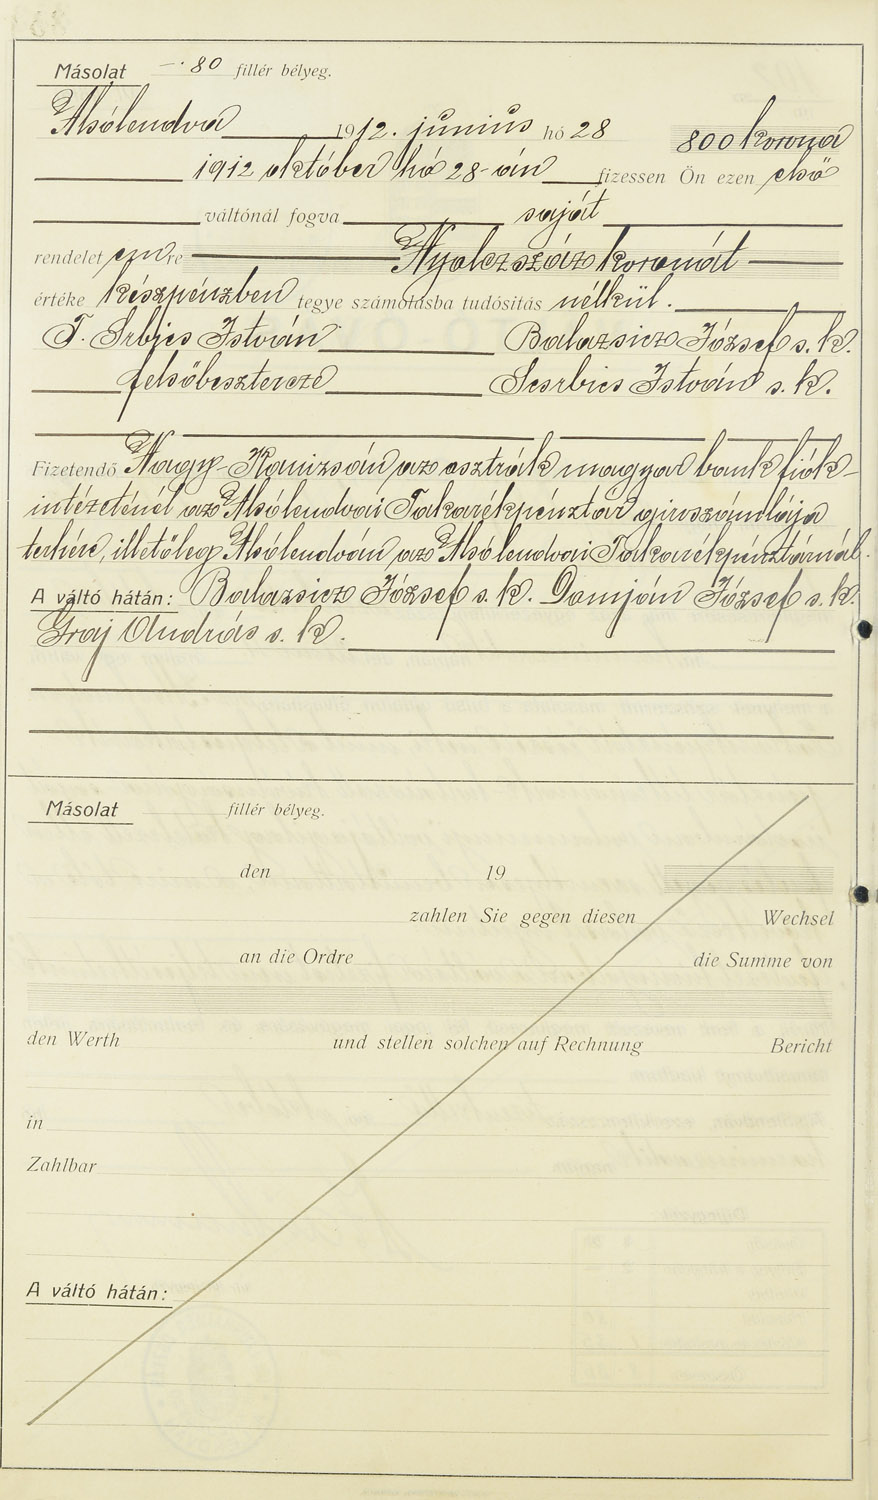 Másolat —·80 fillér bélyeg.
Alsólendva 1912. június hó 28 800 korona
1912 október hó 28-án fizessen Ön ezen első
váltónál fogva saját
rendelet emre Nyolczszáz koronát
értéke készpénzben tegye számolásba tudósitás nélkül.
T. Srbics István Balazsicz József s. k.
felsőbesztercze Scsrbics István s. k.
Fizetendő Nagy-Kanizsán az osztrák magyar bank fiók-
intézeténél az Alsólendvai Takarékpénztár giroszámlája
terhére, illetőleg Alsólendván az Alsólendvai Takarékpénztárnál.
A váltó hátán: Balazsicz József s. k. Domján József s. k.
Graj András s. k.
Másolat fillér bélyeg.
den 19
zahlen Sie gegen diesen Wechsel
an die Ordre die Summe von
den Werth und stellen solchen auf Rechnung Bericht
in
Zahlbar
A váltó hátán: